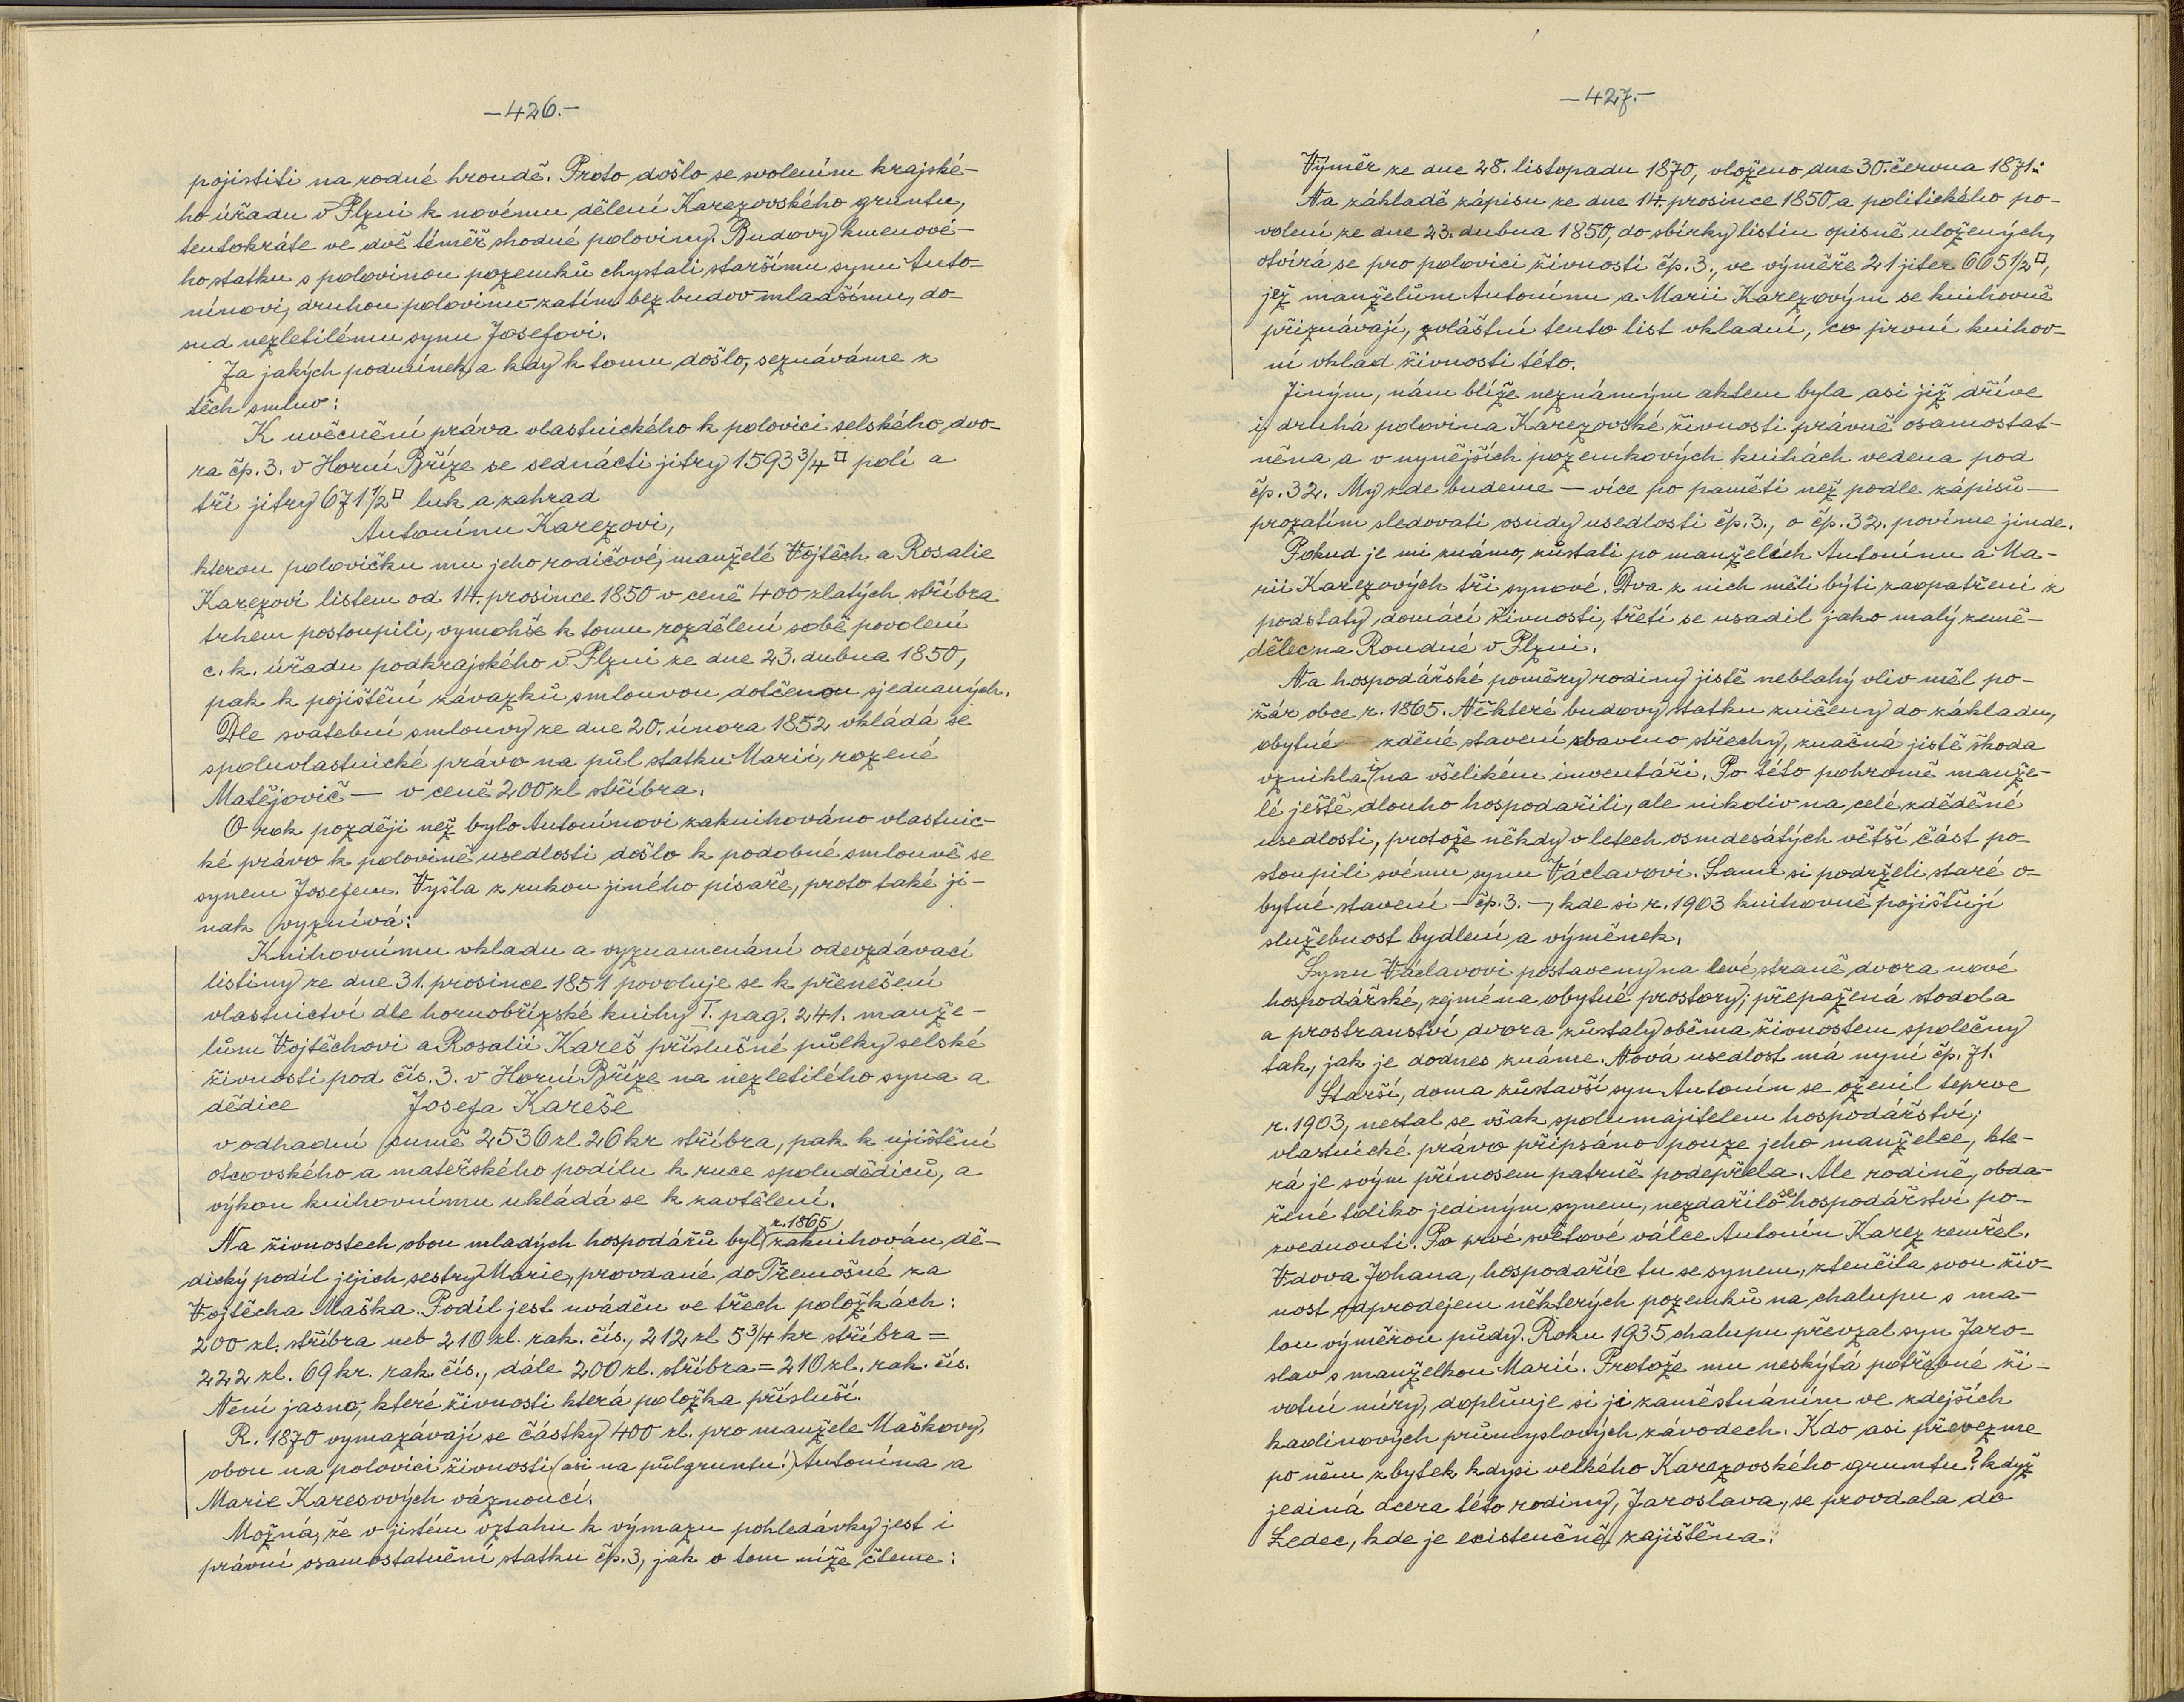 —426.—
pojistiti na rodné hroudě. Proto došlo se svolením krajské-
ho úřadu v Plzni k novému dělení Karezovského gruntu,
tentokráte ve dvě téměř shodné poloviny. Budovy kmenové-
ho statku s polovinou pozemků chystali staršímu synu Anto-
nínovi, druhou polovinu – zatím bez budov – mladšímu, do-
sud nezletilému synu Josefovi.
Za jakých podmínek a kdy k tomu došlo, seznáváme z
těch smluv:
K uvěcnění práva vlastnického k polovici selského dvo-
ra čp. 3. v Horní Bříze se sednácti jitry 1593 3/4 □ polí a
tři jitry 671 1/2 □ luk a zahrad
Antonínu Karezovi,
kterou polovičku mu jeho rodičové, manželé Vojtěch a Rosalie
Karezovi listem od 14. prosince 1850 v ceně 400 zlatých stříbra
trhem postoupili, vymohše k tomu rozdělení sobě povolení
c. k. úřadu podkrajského v Plzni ze dne 23. dubna 1850,
pak k pojištění závazků smlouvou dotčenou sjednaných.
Dle svatební smlouvy ze dne 20. února 1852 vkládá se
spoluvlastnické právo na půl statku Marii, rozené
Matějovič — v ceně 200 zl stříbra.
O rok později než bylo Antonínovi zaknihováno vlastnic-
ké právo k polovině usedlosti došlo k podobné smlouvě se
synem Josefem. Vyšla z rukou jiného písaře, proto také ji-
nak vyznívá:
Knihovnímu vkladu a vyznamenání odevzdávací
listiny ze dne 31. prosince 1851 povoluje se k přenešení
vlastnictví dle hornobřízské knihy I. pag. 241. manže-
lům Vojtěchovi a Rosalii Kareš příslušné půlky selské
živnosti pod čís. 3. v Horní Bříze na nezletilého syna a
dědice Josefa Kareše
v odhadní sumě 2536 zl 26 kr stříbra, pak k ujištění
otcovského a mateřského podílu k ruce spoludědiců, a
výkon knihovnímu ukládá se k zavtělení.
Na živnostech obou mladých hospodářů byl r. 1865 zaknihován dě-
dický podíl jejich sestry Marie, provdané do Třemošné za
Vojtěcha Maška. Podíl jest uváděn ve třech položkách:
200 zl. stříbra neb 210 zl. rak. čís., 212 zl 5 3/4 kr stříbra =
222 zl. 69 kr. rak. čís., dále 200 zl. stříbra = 210 zl. rak. čís.
Není jasno, které živnosti která položka přísluší.
R. 1870 vymazávají se částky 400 zl. pro manžele Maškovy,
obou na polovici živnosti (asi na půlgruntu!) Antonína a
Marie Karesových váznoucí.
Možná, že v jistém vztahu k výmazu pohledávky jest i
právní osamostatnění statku čp. 3, jak o tom níže čteme:
—427.—
Výměr ze dne 28. listopadu 1870, vloženo dne 30. června 1871:
Na základě zápisu ze dne 14. prosince 1850 a politického po-
volení ze dne 23. dubna 1850, do sbírky listin opisně uložených,
otvírá se pro polovici živnosti čp. 3., ve výměře 21 jiter 665 1/2 □,
jež manželům Antonínu a Marii Karezovým se knihovně
přiznávají, zvláštní tento list vkladní, co první knihov-
ní vklad živnosti této.
Jiným, nám blíže neznámým aktem byla asi již dříve
i druhá polovina Karezovské živnosti právně osamostat-
něna a v nynějších pozemkových knihách vedena pod
čp. 32. My zde budeme — více po paměti než podle zápisů —
prozatím sledovati osudy usedlosti čp. 3., o čp. 32. povíme jinde.
Pokud je mi známo, zůstali po manželích Antonínu a Ma-
rii Karezových tři synové. Dva z nich měli býti zaopatřeni z
podstaty domácí živnosti, třetí se usadil jako malý země-
dělec na Roudné v Plzni.
Na hospodářské poměry rodiny jistě neblahý vliv měl po-
žár obce r. 1865. Některé budovy statku zničeny do základu,
obytné zděné stavení zbaveno střechy, značná jistě škoda
vznikla i na všelikém inventáři. Po této pohromě manže-
lé ještě dlouho hospodařili, ale nikoliv na celé zděděné
usedlosti, protože někdy v letech osmdesátých větší část po-
stoupili svému synu Václavovi. Sami si podrželi staré o-
bytné stavení – čp. 3. –, kde si r. 1903 knihovně pojišťují
služebnost bydlení a výměnek.
Synu Václavovi postaveny na levé straně dvora nové
hospodářské, zejména obytné prostory; přepažená stodola
a prostranství dvora zůstaly oběma živnostem společny
tak, jak je dodnes známe. Nová usedlost má nyní čp. 71.
Starší, doma zůstavší syn Antonín se oženil teprve
r. 1903, nestal se však spolumajitelem hospodářství;
vlastnické právo připsáno pouze jeho manželce, kte-
rá je svým přínosem patrně podepřela. Ale rodině, obda-
řené toliko jediným synem, nezdařilo se hospodářství po-
zvednouti. Po prvé světové válce Antonín Karez zemřel.
Vdova Johana, hospodaříc tu se synem, ztenčila svou živ-
nost odprodejem některých pozemků na chalupu s ma-
lou výměrou půdy. Roku 1935 chalupu převzal syn Jaro-
slav s manželkou Marií. Protože mu neskýtá potřebné ži-
votní míry, doplňuje si ji zaměstnáním ve zdejších
kaolinových průmyslových závodech. Kdo asi převezme
po něm zbytek kdysi velkého Karezovského gruntu? když
jediná dcera této rodiny, Jaroslava, se provdala do
Ledec, kde je existenčně zajištěna.